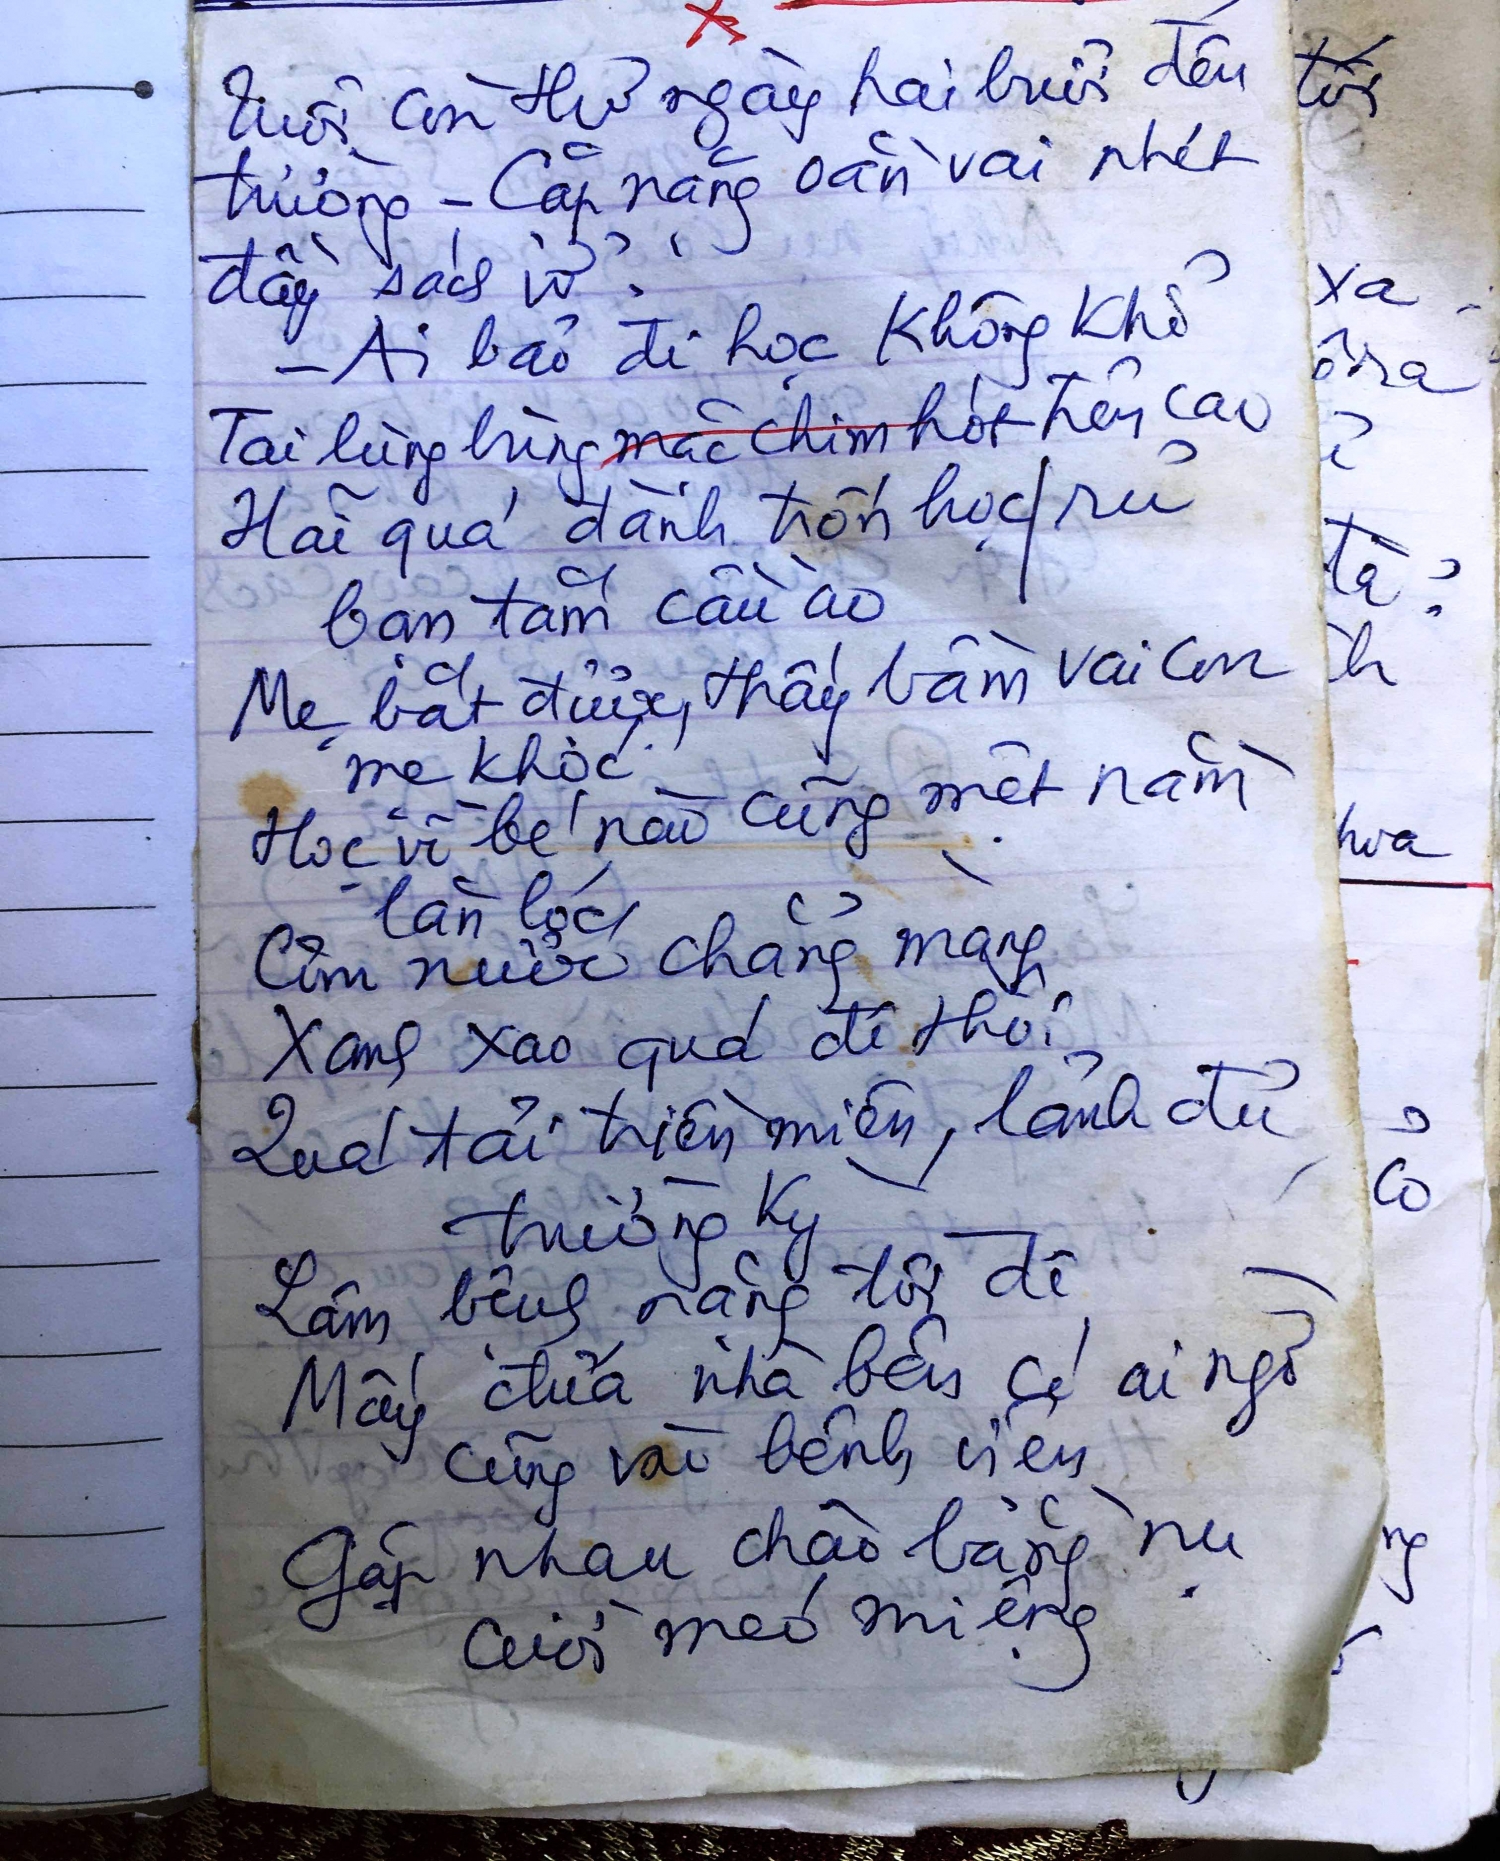 Tuổi con thơ ngày hai buổi đến
trường – Cặp nặng oằn vai nhét
đầy sách vở?
– Ai bảo đi học không khổ
Tai lùng bùng mặc chim hót trên cao
Hãi quá đành trốn học/rủ
bạn tắm cầu ao
Mẹ bắt được, thấy bầm vai con
mẹ khóc
Học vì bé nào cũng mệt nằm
lăn lóc
Cơm nước chẳng màng
Xanh xao quá đi thôi
Quá tải triền miên, lãnh đủ
trường kỳ
Lâm bệnh nặng tôi đi
Mấy đứa nhà bên có ai ngờ
cũng vào bệnh viện
Gặp nhau chào bằng nụ
cười méo miệng
tới
xa
ra
đa?
h
hoa
cỏ
ng